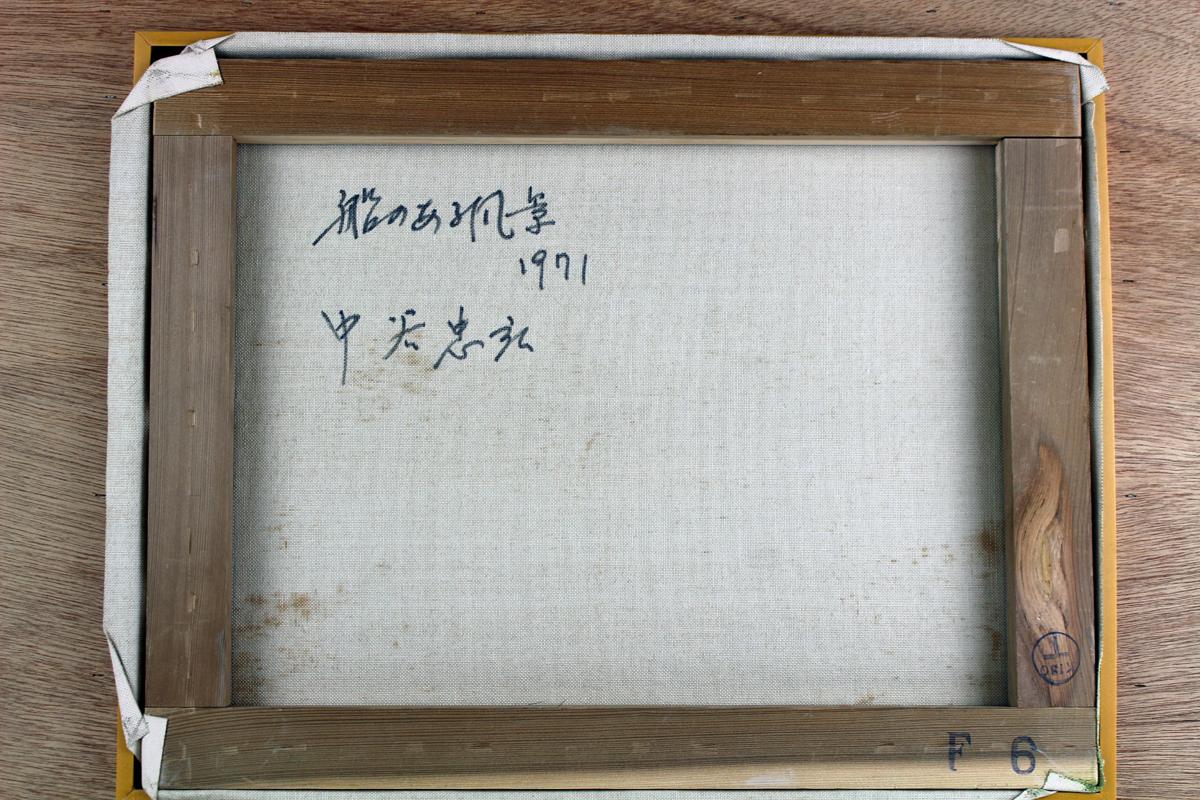 船のある風景
1971
中谷忠弘
F 6